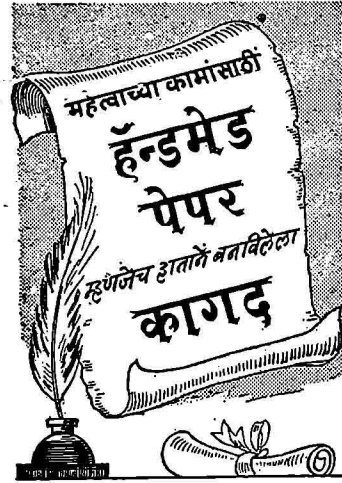 महत्वाच्या कामांसाठीं
हॅन्डमेड
पेपर
म्हणजेच हातानें बनविलेला
कागद